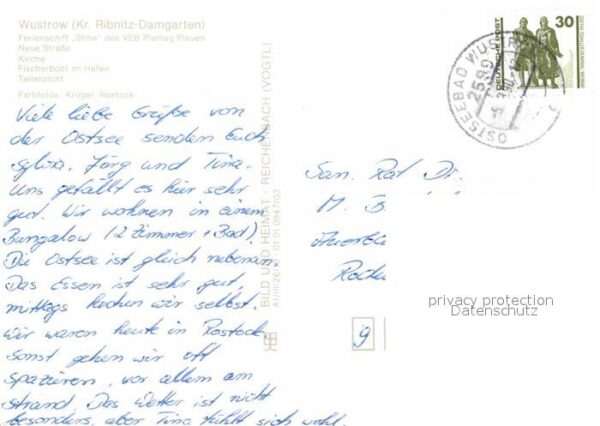 Wustrow (Kr. Ribnitz-Damgarten)
Ferienschiff „Stine“ des VEB Plamag Plauen
Neue Straße
Kirche
Fischerboot im Hafen
Teilansicht
Farbfotos: Krüger, Rostock
Viele liebe Grüße von
der Ostsee senden Euch
Sylvia, Jörg und Tina.
Uns gefällt es hier sehr
gut. Wir wohnen in einem
Bungalow (2 Zimmer + Bad).
Die Ostsee ist gleich nebenan.
Das Essen ist sehr gut,
mittags kochen wir selbst.
Wir waren heute in Rostock.
Sonst gehen wir oft
spazieren, vor allem am
Strand. Das Wetter ist nicht
besonders, aber Tina fühlt sich wohl.
BILD UND HEIMAT · REICHENBACH (VOGTL)
01 01 0947/03
DEUTSCHE POST
30
OSTSEEBAD WUSTROW
2589
San. Rat Dr.
M. B
Auerba
Rode
g
privacy protection
Datenschutz